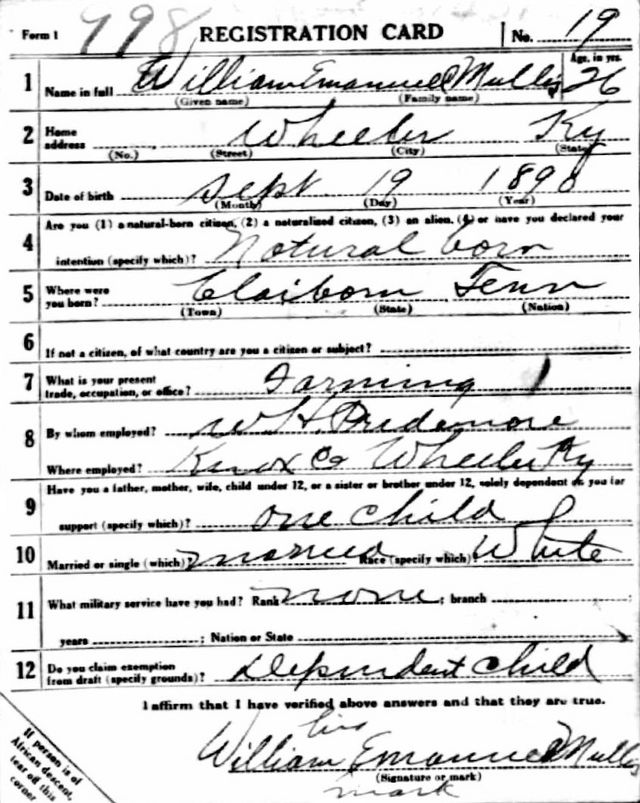 Form 1 998 REGISTRATION CARD No. 19
Age, in yrs.
1 Name in full William Emanuel 26
(Given name) (Family name)
2 Home address Wheeler Ky
(No.) (Street) (City) (State)
3 Date of birth Sept 19 1890
(Month) (Day) (Year)
Are you (1) a natural-born citizen, (2) a naturalized citizen, (3) an alien, (4) or have you declared your
4 intention (specify which)? Natural born
5 Where were you born? Claiborn Tenn
(Town) (State) (Nation)
6 If not a citizen, of what country are you a citizen or subject?
7 What is your present trade, occupation, or office? Farming
8 By whom employed? W H Pridemore
Where employed? Knox Co Wheeler Ky
Have you a father, mother, wife, child under 12, or a sister or brother under 12, solely dependent on you for
9 support (specify which)? one child
10 Married or single (which)? married Race (specify which)? White
11 What military service have you had? Rank none ; branch
years ; Nation or State
12 Do you claim exemption from draft (specify grounds)? Dependent child
I affirm that I have verified above answers and that they are true.
his
William Emanuel
(Signature or mark)
mark
If person is of
African descent,
tear off this
corner